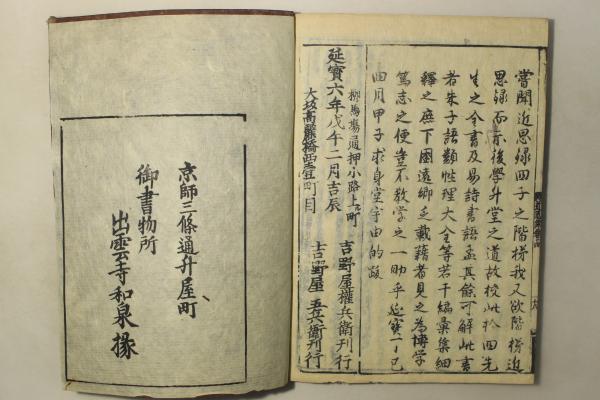 嘗聞近思録四子之階梯我又欲階梯近
思録而示後學升堂之道故校此於四先
生之全書及易詩書語孟其餘可解此書
若朱子語類性理大全等若干編彙集細
釋之庶下國遠鄉乏載藉者見之為博學
篤志之便豈不教學之一助乎延寶丁巳
四月甲子求身堂宇由的跋
延寶六年戊午二月吉辰
柳馬場通押小路上ル町
吉野屋權兵衛刊行
大坂高麗橋西壹町目
吉野屋五兵衛刊行
京師三條通升屋町
御書物所
出雲寺和泉掾